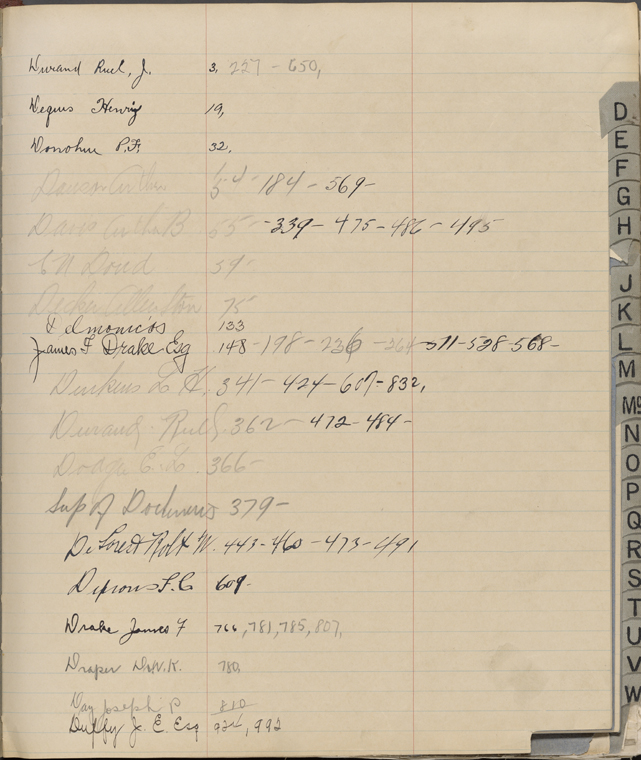 Durand Ruel, J. 3, 227 - 650,
Degus Henry 19,
Donohue P.F. 32,
Dawson Arthur 184 - 569 -
Davis Arthur B 55 - 339 - 475 - 486 - 495
E W Doud 59 -
Decker Allerston 75 -
Delmonico's 133
James F Drake Esq 148 - 198 - 236 - 264 - 511 - 528 - 568 -
L H. 341 - 424 - 607 - 832,
Durand Ruel 362 - 472 - 484 -
Dodge E. L. 366 -
Sup of Documents 379 -
De Forest Robt W. 443 - 460 - 473 - 491
F. C 609 -
Drake James F 766, 781, 785, 807,
Draper Dr W. K. 780,
Day Joseph P 810
Duffy J. E. Esq 924, 992
D
E
F
G
H
J
K
L
M
Mc
N
O
P
Q
R
S
T
U
V
W